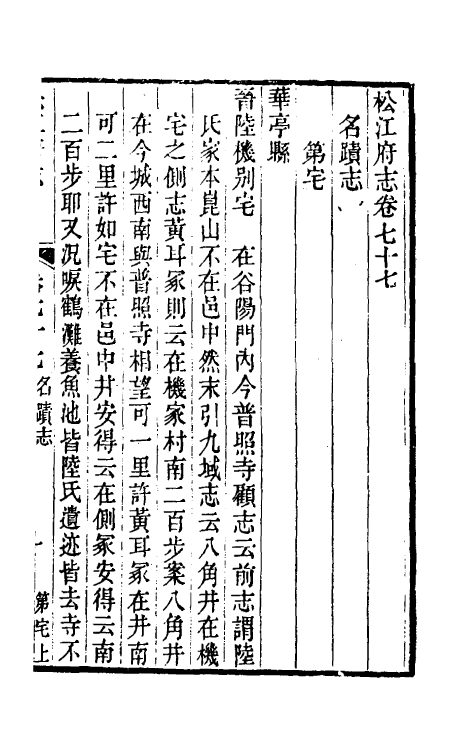 松江府志卷七十七
名蹟志
第宅
華亭縣
晉陸機别宅　在谷陽門內今普照寺顧志云前志謂陸
氏家本崑山不在邑中然末引九域志云八角井在機
宅之側志黃耳冢則云在機家村南二百步案八角井
在今城西南與普照寺相望可一里許黃耳冢在井南
可二里許如宅不在邑中井安得云在側冢安得云南
二百步耶又況唳鶴灘養魚池皆陸氏遺迹皆去寺不
名蹟志
一
第宅上